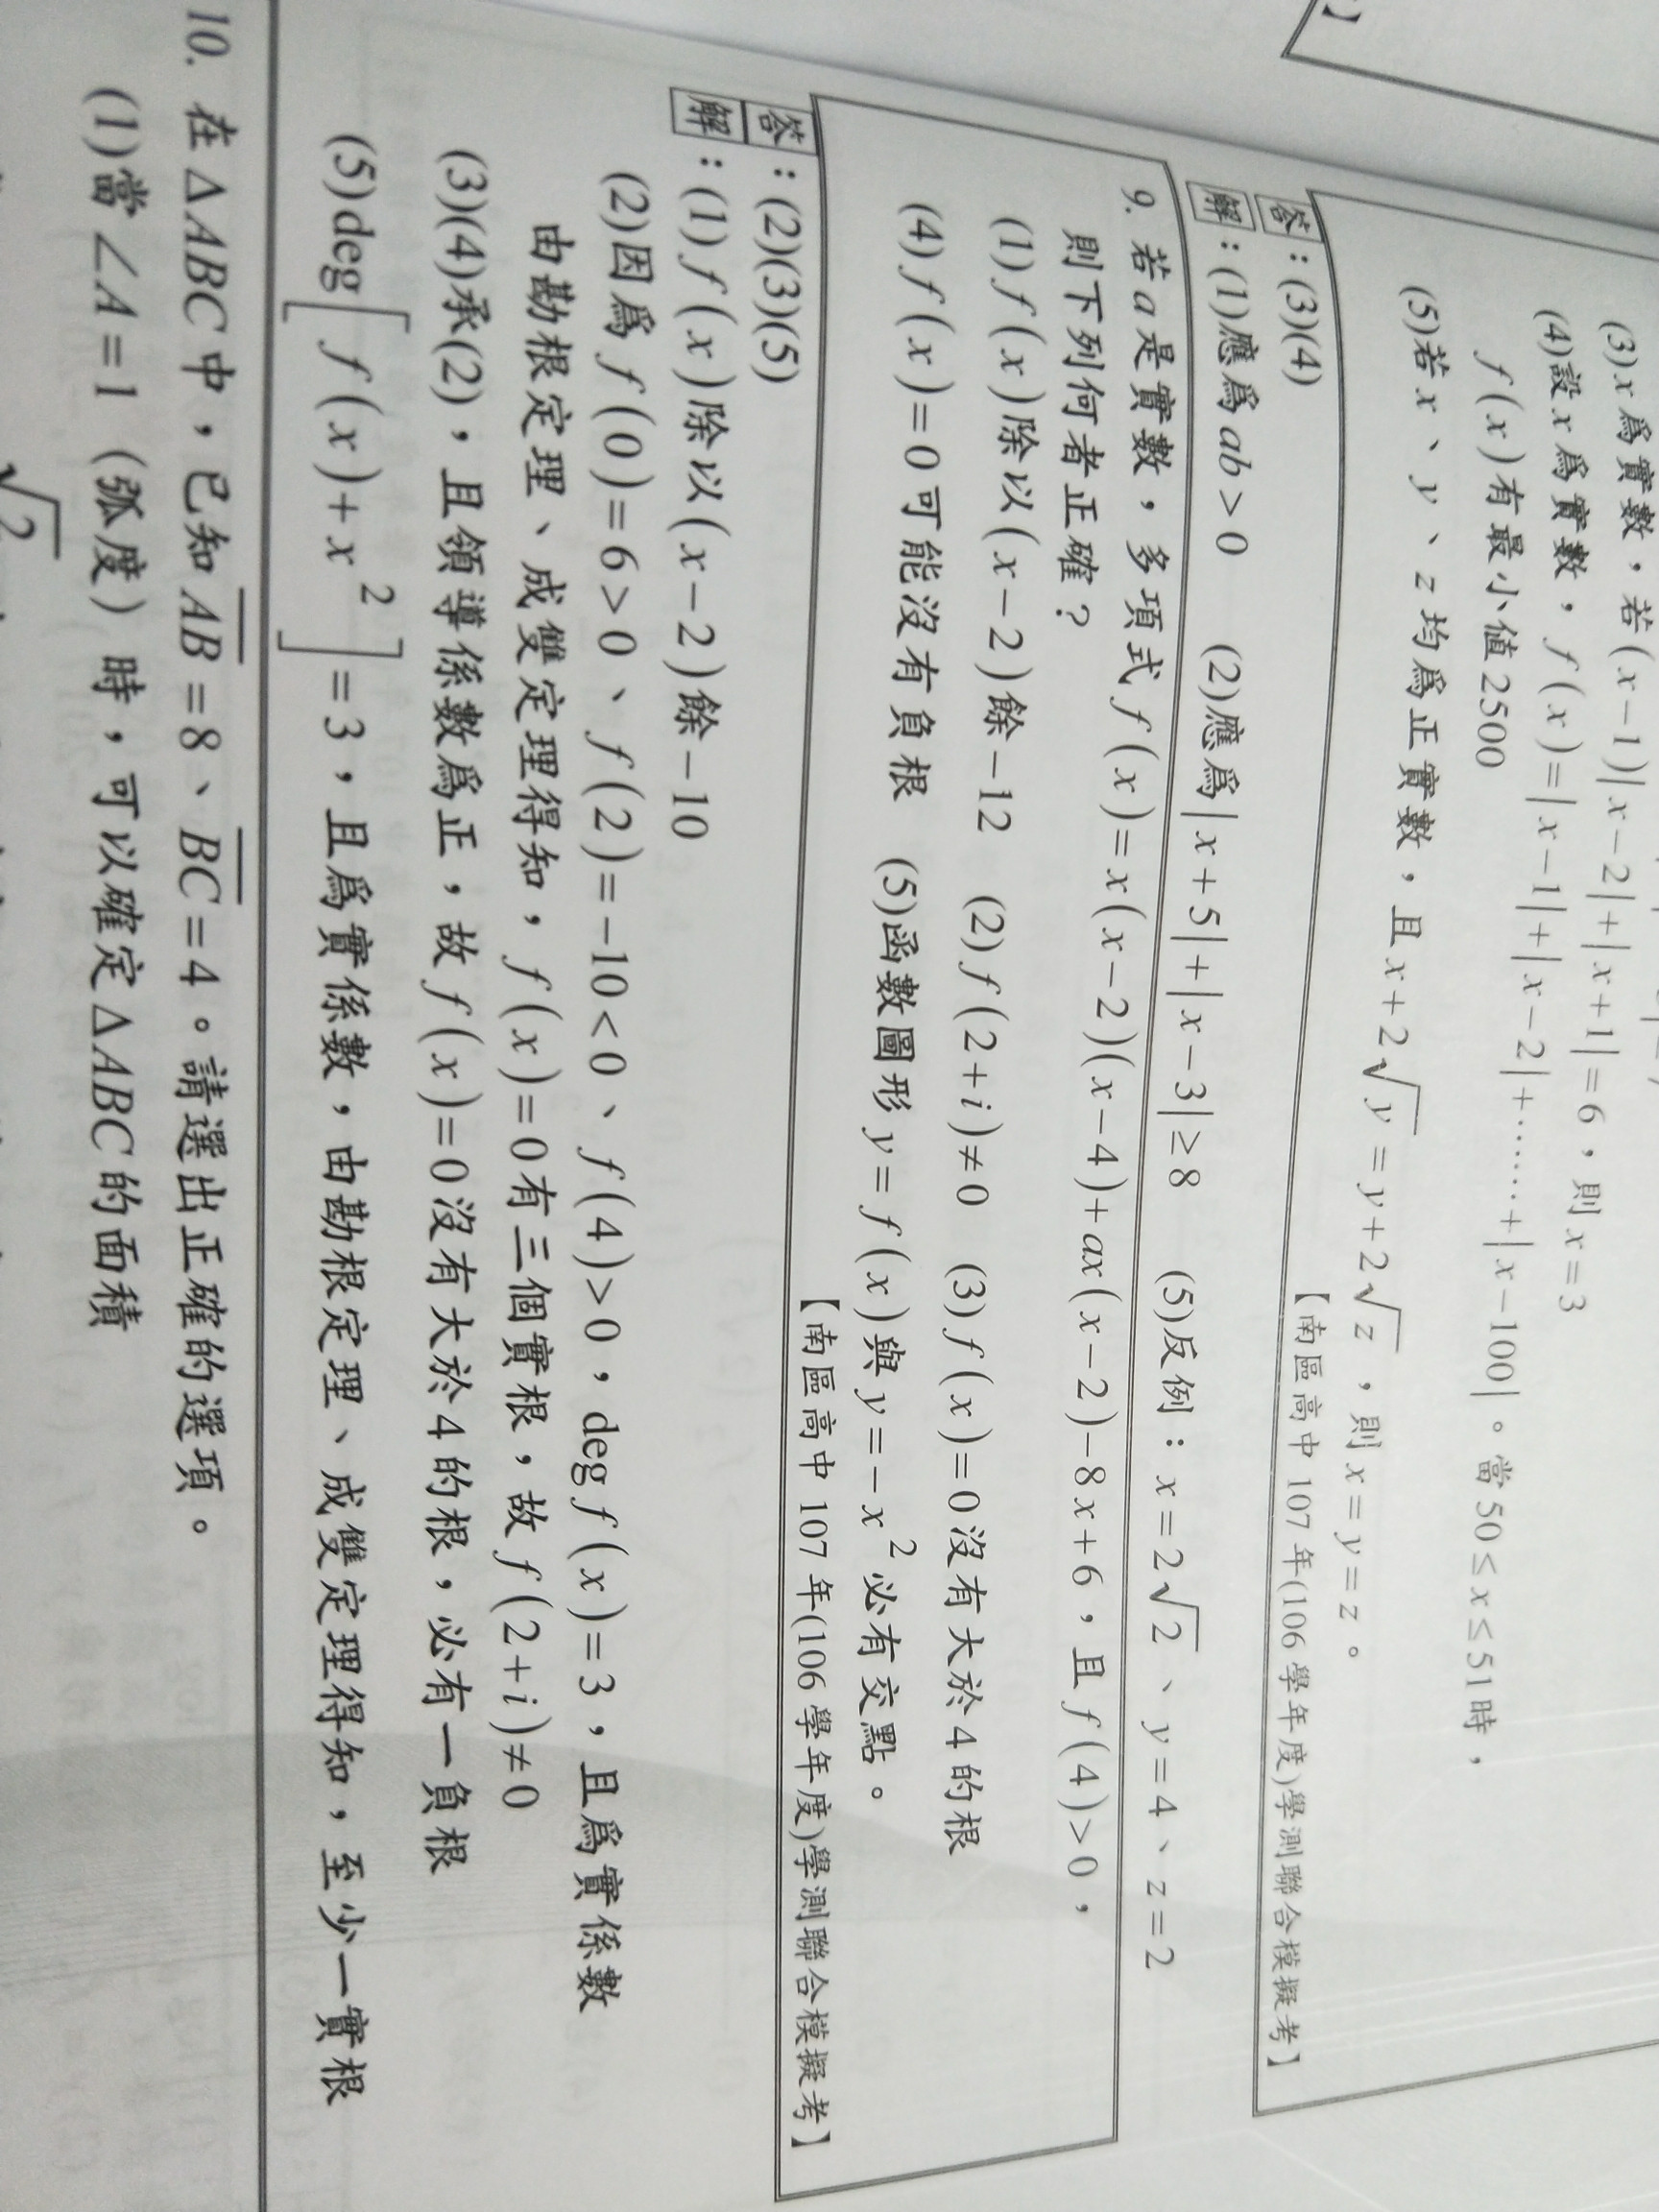 】
(3) x 為實數，若 (x−1)|x−2|+|x+1|=6，則 x=3
(4)設 x 為實數，f(x)=|x−1|+|x−2|+……+|x−100|。當 50≤x≤51 時，
f(x)有最小值 2500
(5)若 x、y、z 均為正實數，且 x+2√y=y+2√z，則 x=y=z。
【南區高中 107 年(106 學年度)學測聯合模擬考】
答：(3)(4)
解：(1)應為 ab>0 (2)應為|x+5|+|x−3|≥8 (5)反例：x=2√2、y=4、z=2
9. 若 a 是實數，多項式 f(x)=x(x−2)(x−4)+ax(x−2)−8x+6，且 f(4)>0，
則下列何者正確？
(1) f(x)除以(x−2)餘−12 (2) f(2+i)≠0 (3) f(x)=0 沒有大於 4 的根
(4) f(x)=0 可能沒有負根 (5)函數圖形 y=f(x)與 y=−x²必有交點。
【南區高中 107 年(106 學年度)學測聯合模擬考】
答：(2)(3)(5)
解：(1) f(x)除以(x−2)餘−10
(2)因為 f(0)=6>0、f(2)=−10<0、f(4)>0，deg f(x)=3，且為實係數
由勘根定理、成雙定理得知，f(x)=0 有三個實根，故 f(2+i)≠0
(3)(4)承(2)，且領導係數為正，故 f(x)=0 沒有大於 4 的根，必有一負根
(5)deg[f(x)+x²]=3，且為實係數，由勘根定理、成雙定理得知，至少一實根
10. 在△ABC 中，已知 A̅B̅=8、B̅C̅=4。請選出正確的選項。
(1)當∠A=1（弧度）時，可以確定△ABC 的面積
√2